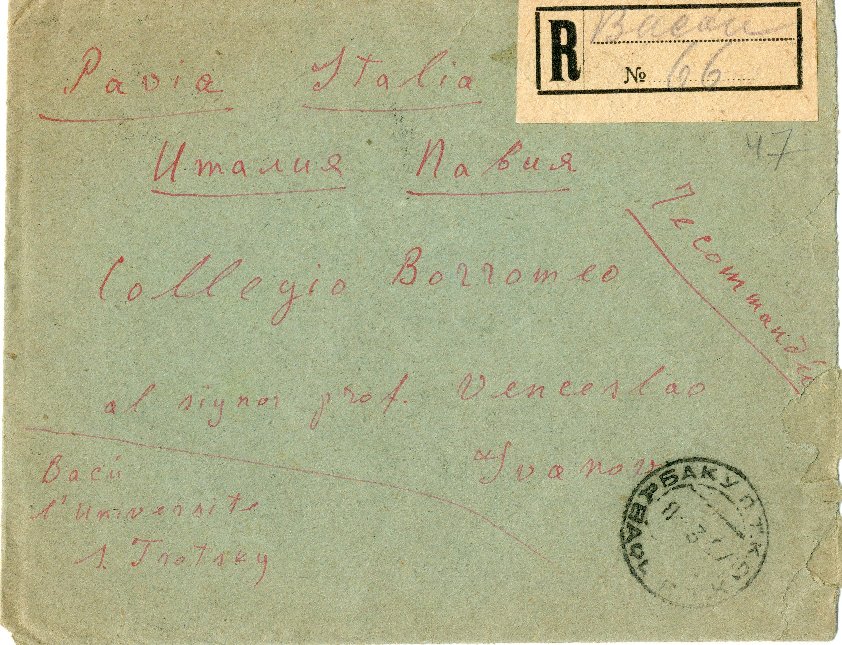 R Bacou
№ 66
Pavia Italia
47
Италия Павия
Recommandée
Collegio Borromeo
al signor prof. Venceslao
Ivanov
Bacù
l'Université
s. Trotsky
БАКУ П.Т.К.